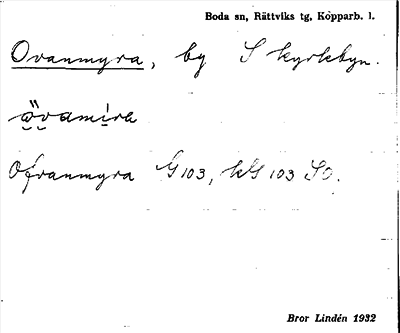 Boda sn, Rättviks tg, Kopparb. l.
Ovanmyra, by S kyrkbyn.
Ofvanmyra G 103, kG 103 SO.
Bror Lindén 1932